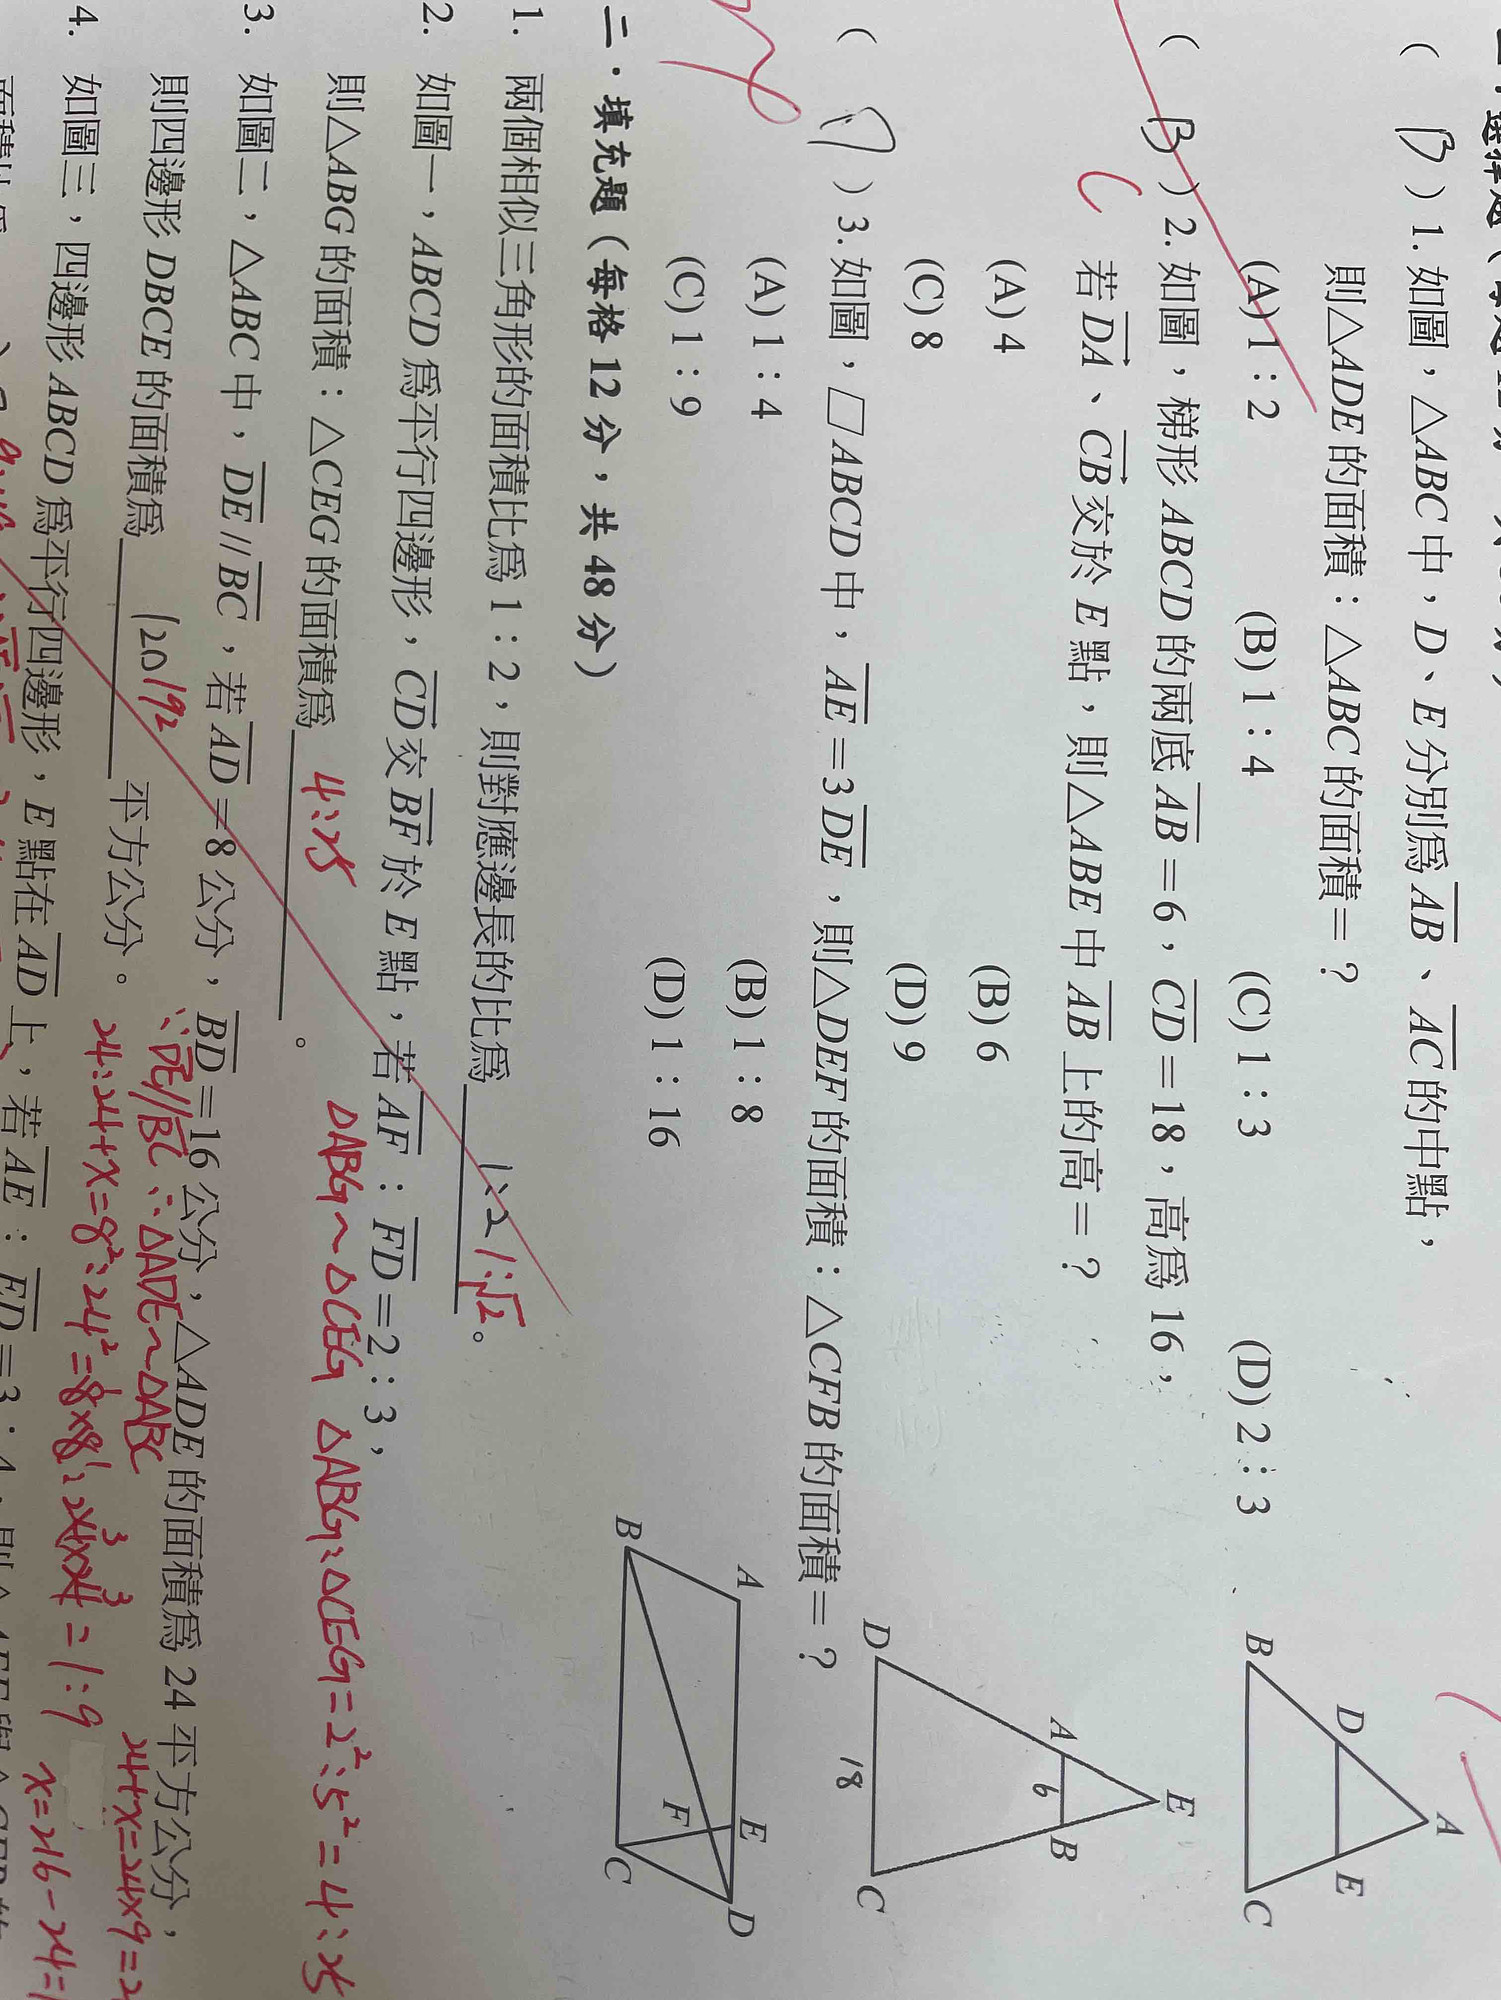 ( B ) 1. 如圖，△ABC 中，D、E 分別為 AB、AC 的中點，
則△ADE 的面積：△ABC 的面積＝？
(A) 1：2 (B) 1：4 (C) 1：3 (D) 2：3
A
D E
B C
( B ) 2. 如圖，梯形 ABCD 的兩底 AB＝6，CD＝18，高為 16，
C
若 DA、CB 交於 E 點，則△ABE 中 AB 上的高＝？
(A) 4 (B) 6
(C) 8 (D) 9
E
A 6 B
D 18 C
( D ) 3. 如圖，▱ABCD 中，AE＝3DE，則△DEF 的面積：△CFB 的面積＝？
(A) 1：4 (B) 1：8
(C) 1：9 (D) 1：16
A E D
F
B C
二．填充題（每格 12 分，共 48 分）
1. 兩個相似三角形的面積比為 1：2，則對應邊長的比為 1:2 1:√2。
2. 如圖一，ABCD 為平行四邊形，CD 交 BF 於 E 點，若 AF：FD＝2：3，
則△ABG 的面積：△CEG 的面積為 4:25。
△ABG~△CEG △ABG:△CEG=2²:5²=4:25
3. 如圖二，△ABC 中，DE // BC，若 AD＝8 公分，BD＝16 公分，△ADE 的面積為 24 平方公分，
∵DE//BC ∴△ADE~△ABC
則四邊形 DBCE 的面積為 120 192 平方公分。
24:24+x=8²:24²=8×8:24×24=1:9
24+x=24×9=2
x=216-24=1
4. 如圖三，四邊形 ABCD 為平行四邊形，E 點在 AD 上，若 AE：ED＝3：4，則